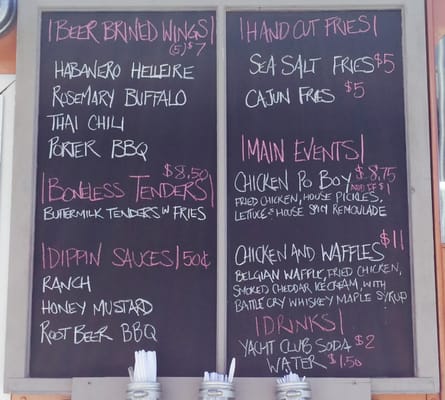 BEER BRINED WINGS
(5) $7
HABANERO HELLFIRE
ROSEMARY BUFFALO
THAI CHILI
PORTER BBQ
$8.50
BONELESS TENDERS
BUTTERMILK TENDERS W/ FRIES
DIPPIN SAUCES 50¢
RANCH
HONEY MUSTARD
ROOT BEER BBQ
HAND CUT FRIES
SEA SALT FRIES $5
CAJUN FRIES $5
MAIN EVENTS
CHICKEN PO BOY $8.75
ADD FF $1
FRIED CHICKEN, HOUSE PICKLES,
LETTUCE & HOUSE SPICY REMOULADE
$11
CHICKEN AND WAFFLES
BELGIAN WAFFLE, FRIED CHICKEN,
SMOKED CHEDDAR ICE CREAM, WITH
BATTLE CRY WHISKEY MAPLE SYRUP
DRINKS
YACHT CLUB SODA $2
WATER $1.50